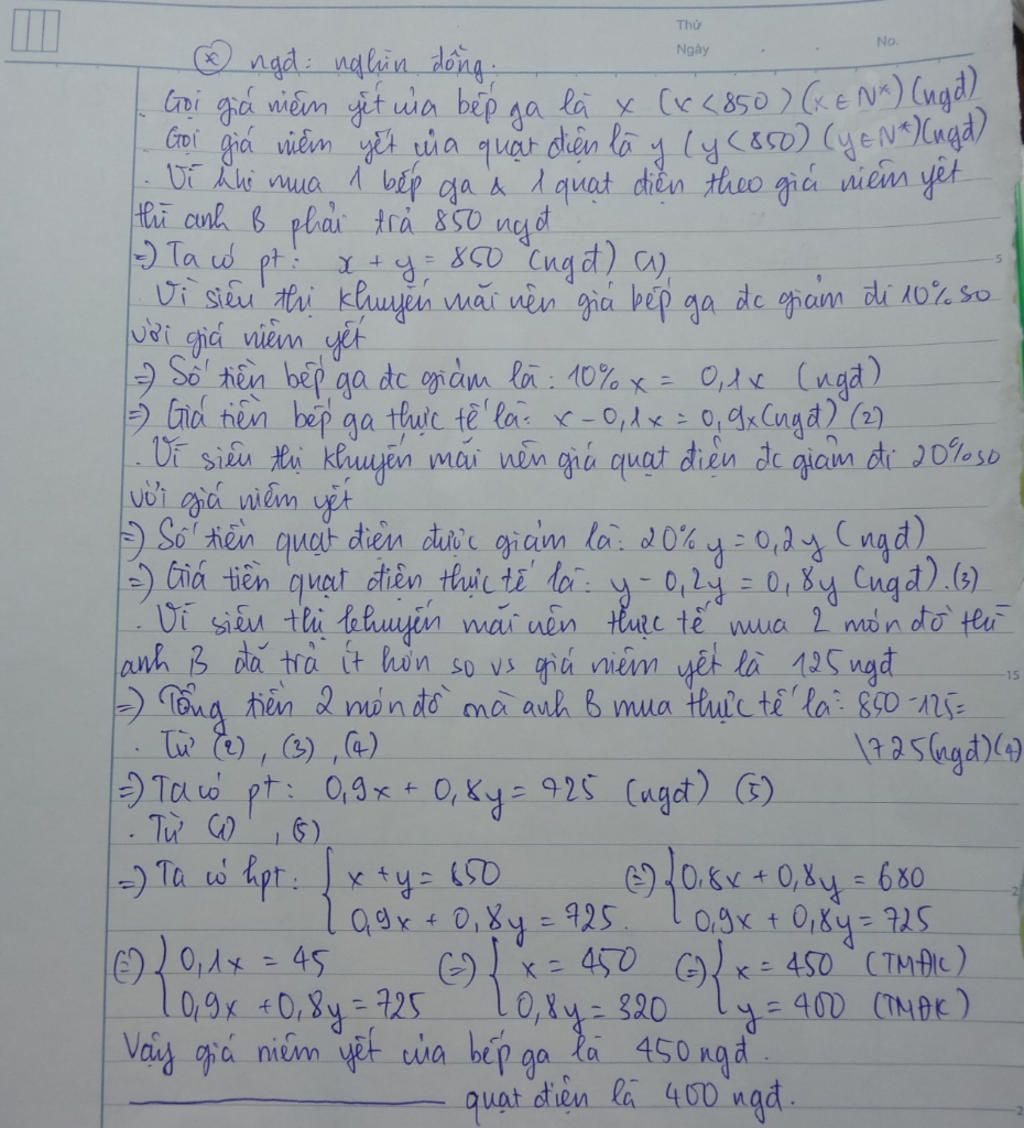 Thứ
Ngày . . No.
(*) ngđ: nghìn đồng.
. Gọi giá niêm yết của bếp ga là x (x < 850) (x ∈ N*) (ngđ)
. Gọi giá niêm yết của quạt điện là y (y < 850) (y ∈ N*) (ngđ)
. Vì khi mua 1 bếp ga & 1 quạt điện theo giá niêm yết
thì anh B phải trả 850 ngđ
=) Ta có pt: x + y = 850 (ngđ) (1)
5
. Vì siêu thị khuyến mãi nên giá bếp ga đc giảm đi 10% so
với giá niêm yết
=) Số tiền bếp ga đc giảm là: 10% x = 0,1x (ngđ)
=) Giá tiền bếp ga thực tế là: x - 0,1x = 0,9x (ngđ) (2)
. Vì siêu thị khuyến mãi nên giá quạt điện đc giảm đi 20% so
với giá niêm yết
=) Số tiền quạt điện được giảm là: 20% y = 0,2y (ngđ)
=) Giá tiền quạt điện thực tế là: y - 0,2y = 0,8y (ngđ). (3)
. Vì siêu thị khuyến mãi nên thực tế mua 2 món đồ thì
anh B đã trả ít hơn so vs giá niêm yết là 125 ngđ
15
=) Tổng tiền 2 món đồ mà anh B mua thực tế là: 850 - 125 =
. Từ (2), (3), (4) \725 (ngđ) (4)
=) Ta có pt: 0,9x + 0,8y = 725 (ngđ) (5)
. Từ (1), (5)
=) Ta có hpt: { x + y = 850 (=) { 0,8x + 0,8y = 680
0,9x + 0,8y = 725. 0,9x + 0,8y = 725
(=) { 0,1x = 45 (=) { x = 450 (=) { x = 450 (TMĐK)
0,9x + 0,8y = 725 0,8y = 320 y = 400 (TMĐK)
Vậy giá niêm yết của bếp ga là 450 ngđ.
———— quạt điện là 400 ngđ.